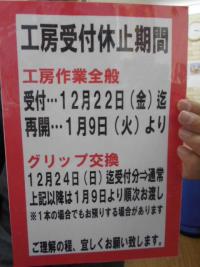 工房受付休止期間
工房作業全般
受付…12月22日（金）迄
再開…1月9日（火）より
グリップ交換
12月24日（日）迄受付分⇒通常
上記以降は1月9日より順次お渡し
※1本の場合でもお預りする場合があります
ご理解の程、宜しくお願い致します。